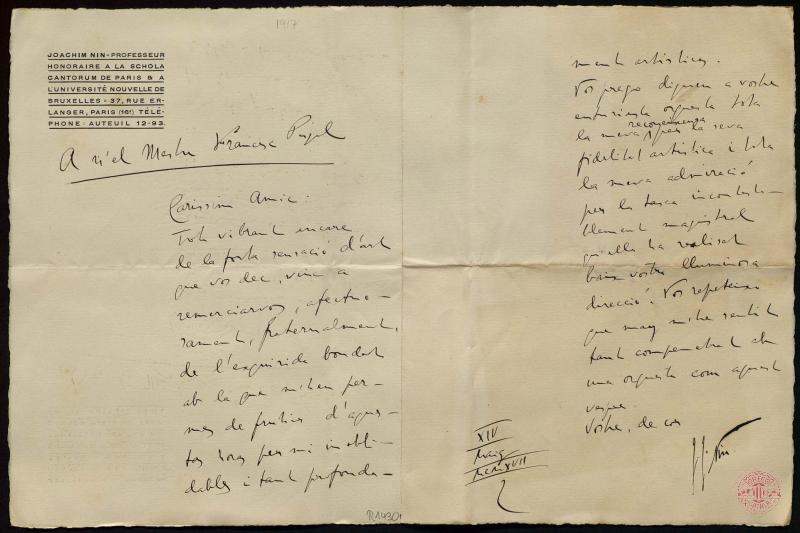 1917
JOACHIM NIN - PROFESSEUR
HONORAIRE A LA SCHOLA
CANTORUM DE PARIS & A
L'UNIVERSITÉ NOUVELLE DE
BRUXELLES - 37, RUE ER-
LANGER, PARIS (16e) TÉLÉ-
PHONE: AUTEUIL 12-93.
A n'el Mestre Francesc Pujol
Carissim Amic:
Tot vibrant encare
de la forta sensació d'art
que vos dec, vinc a
remerciarvos, afectuo-
sament, fraternalment,
de l'exquisida bondat
ab la que m'heu per-
mes de fruhir d'aques-
tas horas per mi inobli-
dables i tant profonda-
ment artisticas.
Vos prego digueu a vostre
entusiasta orquesta tota
la meva reconeixensa per la seva
fidelitat artistica i tota
la meva admiració
per la tasca incontesta-
blement magistral
qu'ella ha realisat
baix vostre lluminosa
direcció. Vos repeteixo
que may m'he sentit
tant compenetrat ab
una orquesta com aquest
vespre.
Vostre, de cor
J. J. Nin
XIV
Maig
MCMXVII
R.1430